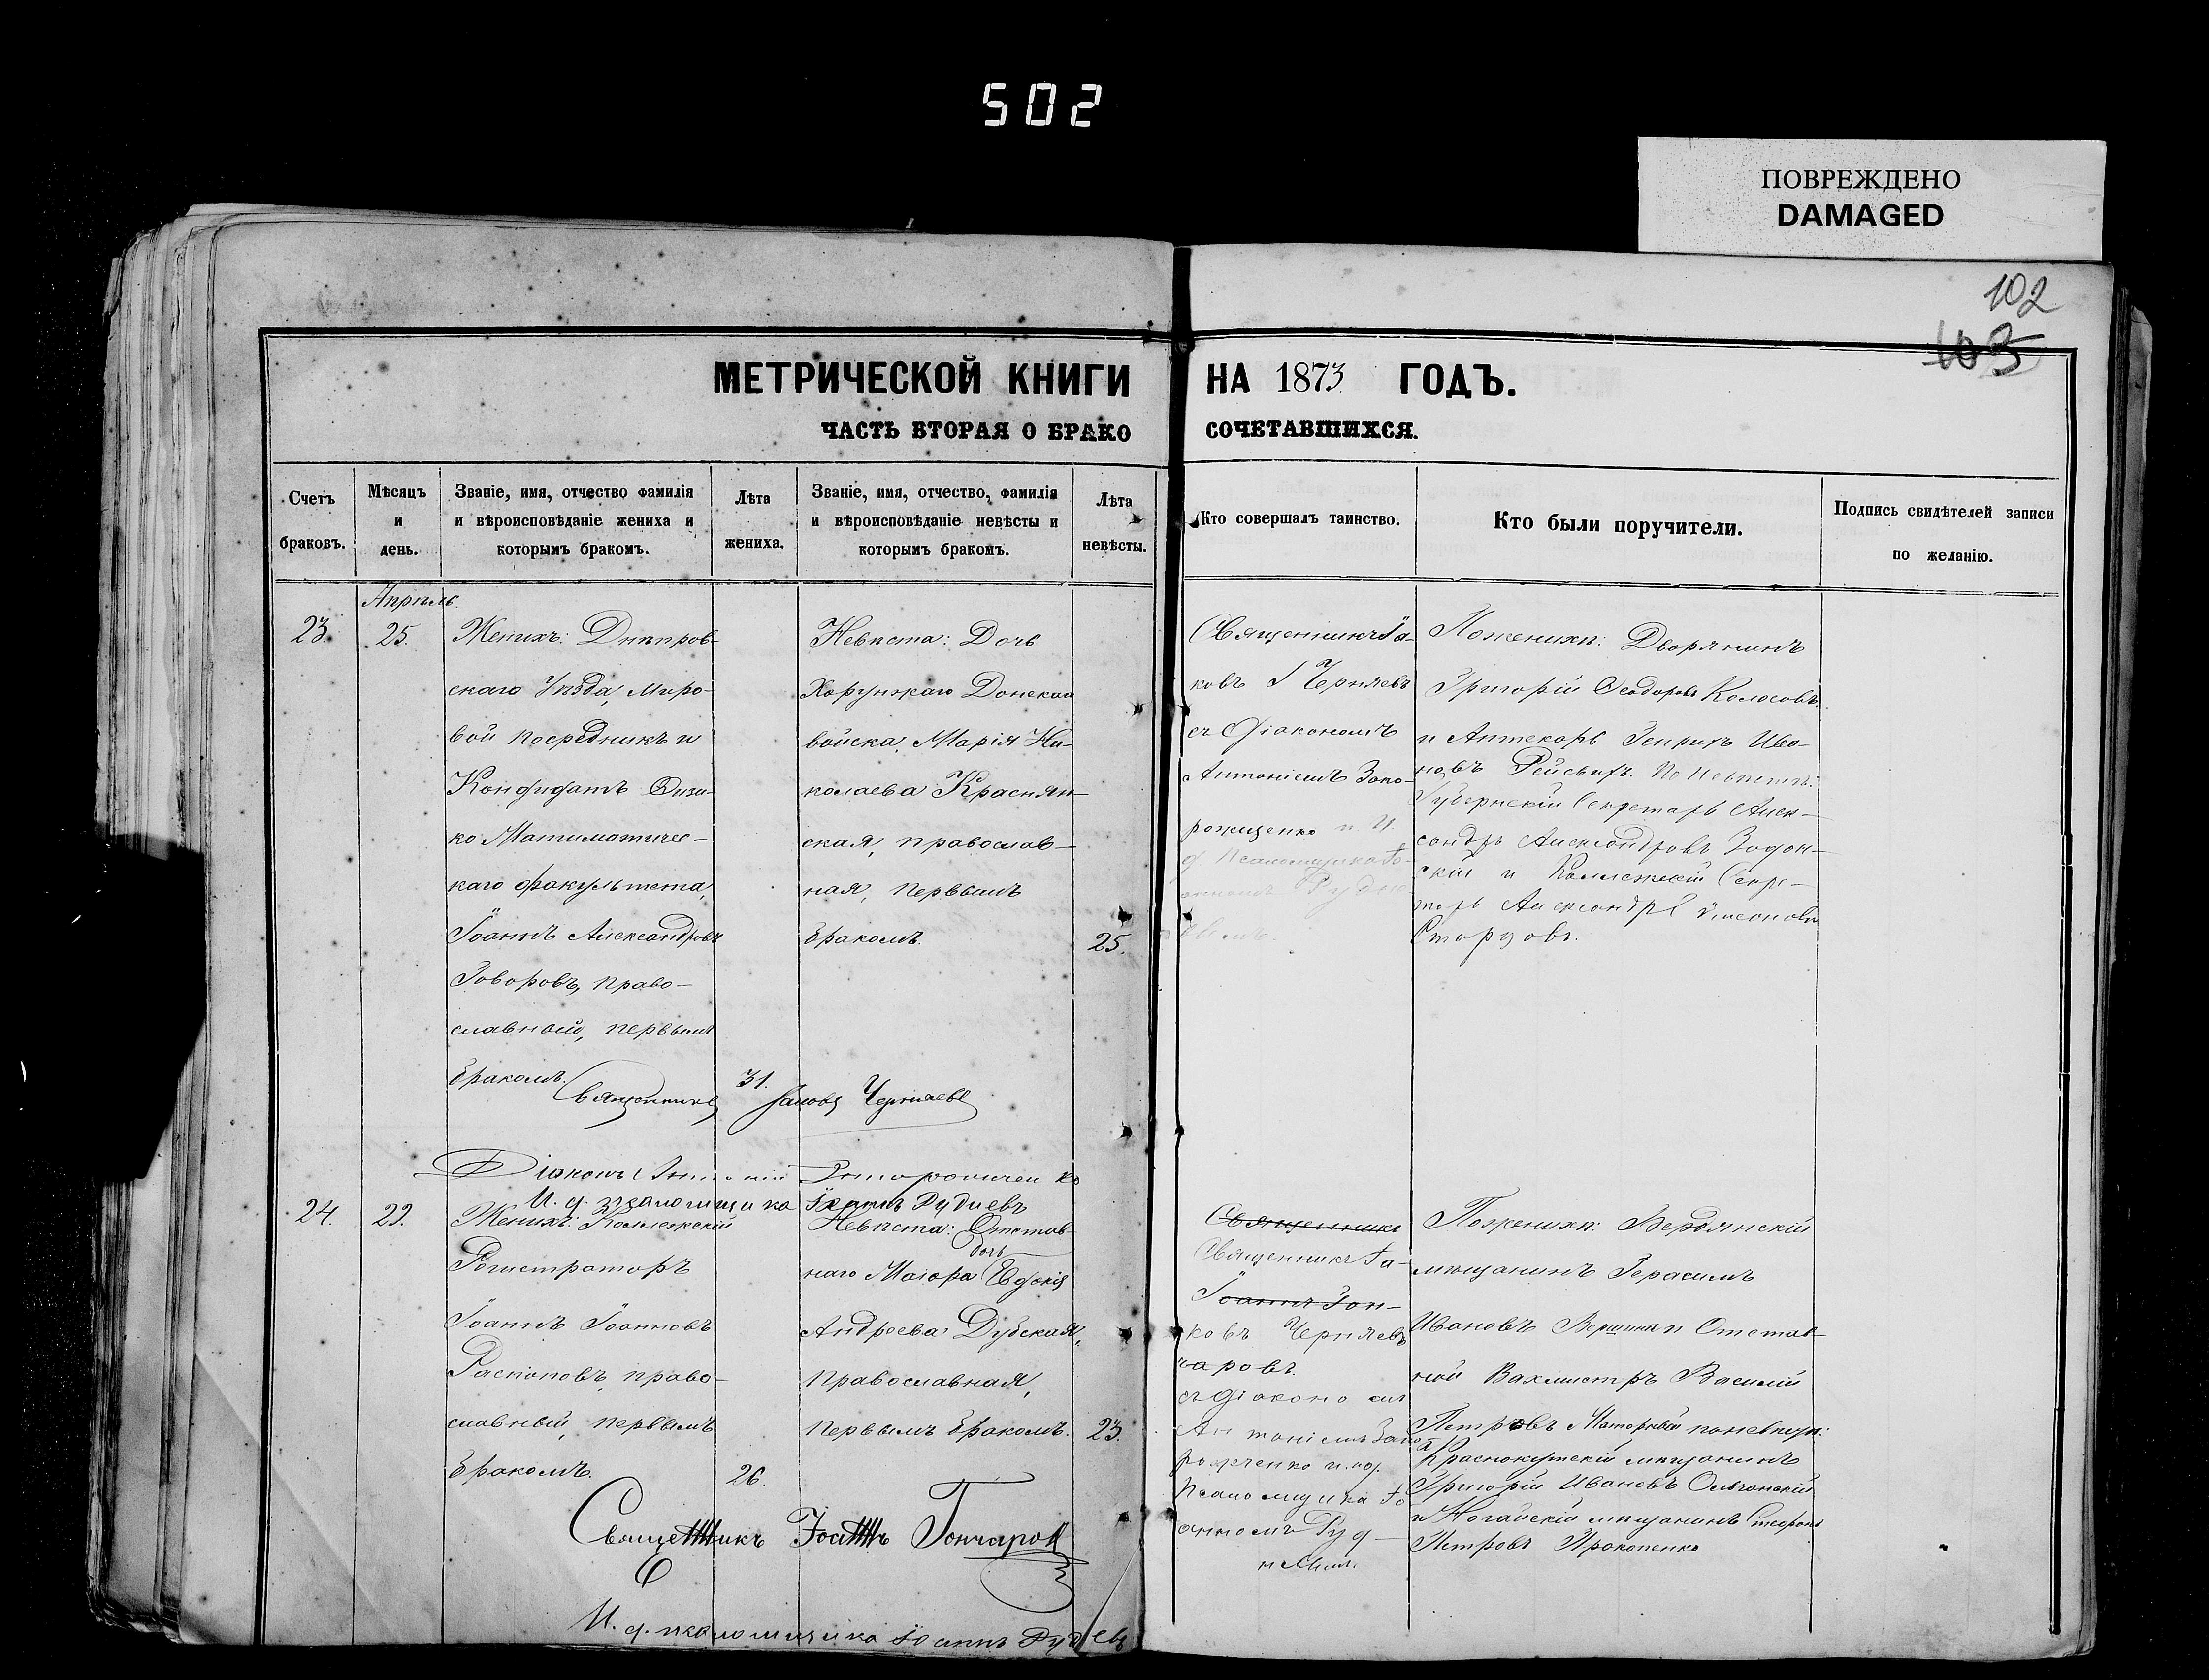 502
ПОВРЕЖДЕНО
DAMAGED
102
103
МЕТРИЧЕСКОЙ КНИГИ НА 1873 ГОДЪ.
ЧАСТЬ ВТОРАЯ О БРАКОСОЧЕТАВШИХСЯ.
Счетъ браковъ.
Мѣсяцъ и день.
Званіе, имя, отчество фамилія и вѣроисповѣданіе жениха и которымъ бракомъ.
Лѣта жениха.
Званіе, имя, отчество, фамилія и вѣроисповѣданіе невѣсты и которымъ бракомъ.
Лѣта невѣсты.
Кто совершалъ таинство.
Кто были поручители.
Подпись свидѣтелей записи по желанію.
Апрѣль
23.
25.
Женихъ: Днѣпров-
скаго Уѣзда, Миро-
вой посредникъ и
Кондидатъ Физи-
ко Матиматичес-
каго факультета,
Іоаннъ Александровъ
Говоровъ, право-
славный, первымъ
бракомъ.
31.
Невѣста: Дочь
Хорунжаго Донскаго
войска, Марія Ни-
колаева Краснян-
ская, православ-
ная, первымъ
бракомъ.
25.
Священникъ Іа-
ковъ Черняевъ
съ Діакономъ
Антоніемъ Запо-
рожценко и И.
д. псаломщика Іо-
анномъ Рудне
вымъ.
По женихѣ: Дворянинъ
Григорій Феодоровъ Колосовъ
и Аптекарь Генрихъ Ива-
новъ По невѣстѣ:
Губернскій Секретарь Алек-
сандръ Александровъ
скій и Коллежскій Секре-
тарь Александръ Симеоновъ
Священникъ Іаковъ Черняевъ
Діаконъ Антоній
И. д. псаломщика Іоаннъ Рудневъ
24.
29.
Женихъ: Коллежскій
Регистраторъ
Іоаннъ Іоанновъ
Распоповъ, право-
славный, первымъ
бракомъ.
26.
Невѣста: Отстав-
дочь
наго Маіора Евдокія
Андреева Дубская,
православная,
первымъ бракомъ.
23.
Священникъ
Священникъ Іа-
Іоаннъ Гон-
ковъ Черняевъ
чаровъ.
съ діакономъ
Антоніемъ Запо
рожченко и. д.
псаломщика Іо-
анномъ Руд-
невымъ.
По женихѣ: Бердянскій
мѣщанинъ Герасимъ
Ивановъ и Отстав-
ной Вахмистръ Василій
Петровъ Маторный по невѣстѣ:
Краснокутскій мѣщанинъ
Григорій Ивановъ Ольчанскій
и Ногайскій мѣщанинъ Стефанъ
Петровъ Прокопенко
Священникъ Іоаннъ Гончаровъ
И. д. псаломщика Іоаннъ Рудневъ